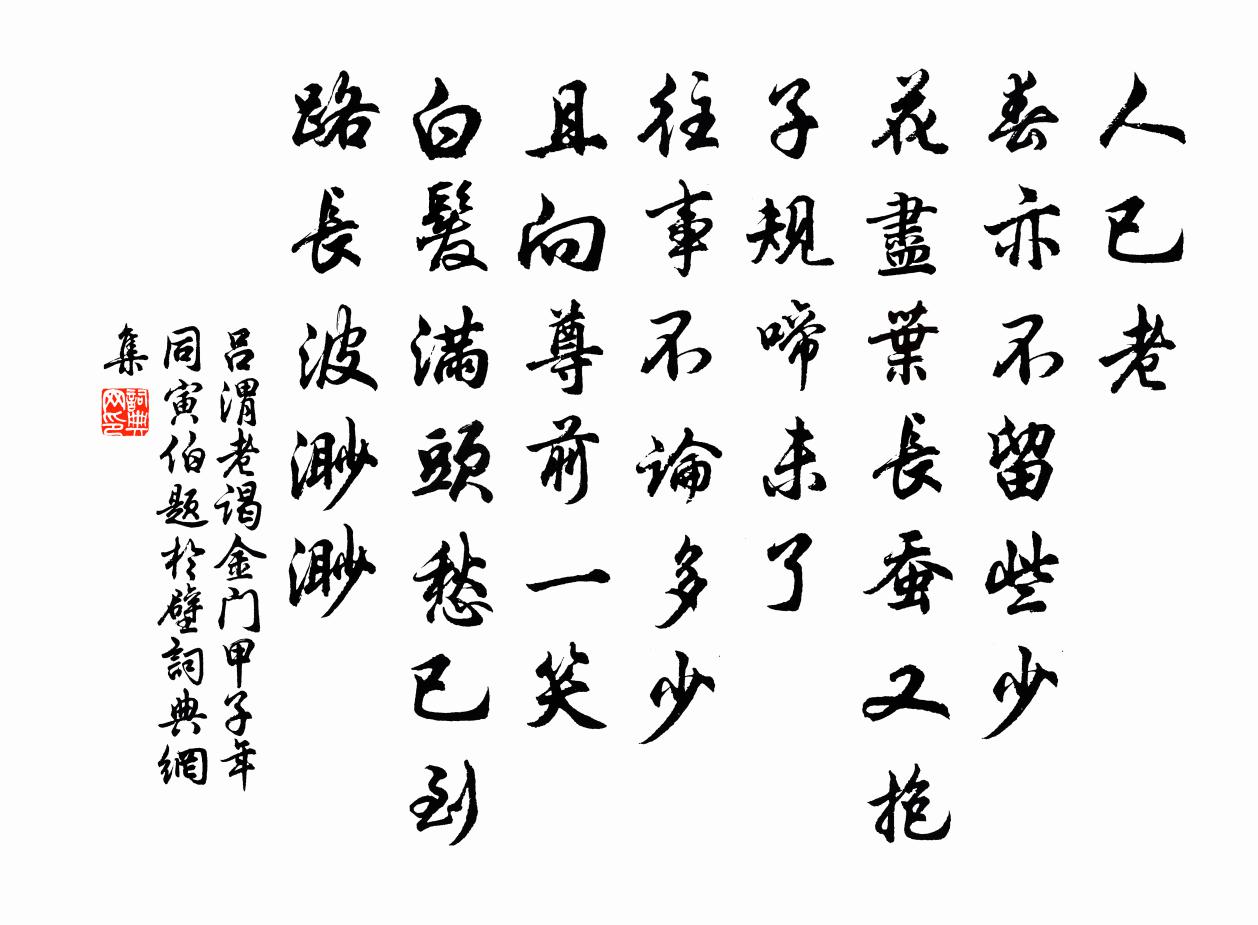 人已老
春亦不留些少
花盡葉長蚕又抱
子規啼未了
往事不論多少
且向尊前一笑
白髮滿頭愁已到
路長波渺渺
吕渭老谒金门甲子年
同寅伯题於壁詞典網
集
詞典网印